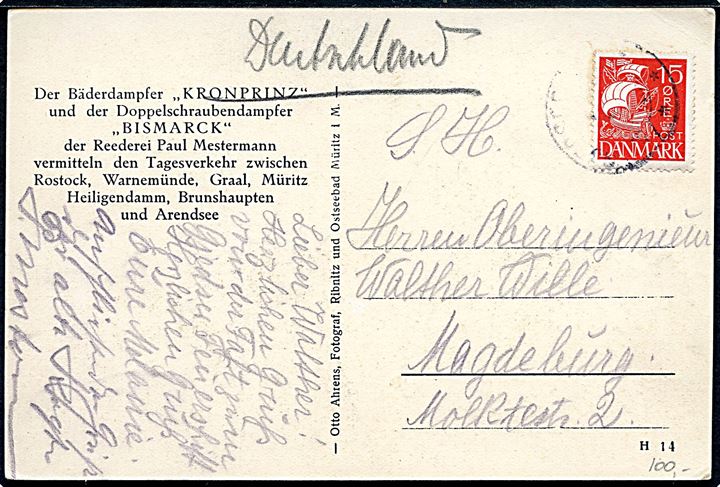 Deutschland
Der Bäderdampfer „KRONPRINZ“
und der Doppelschraubendampfer
„BISMARCK“
der Reederei Paul Mestermann
vermitteln den Tagesverkehr zwischen
Rostock, Warnemünde, Graal, Müritz
Heiligendamm, Brunshaupten
und Arendsee
Lieber Walther!
Herzlichen Gruß
von der Fahrt zum
Gjedser Feuerschiff
Herzlichen Gruß
Eure Melanie.
— Otto Ahrens, Fotograf, Ribnitz und Ostseebad Müritz i M. —
15
ØRE
POST
DANMARK
S. H.
Herren Oberingenieur
Walther Wille
Magdeburg.
Moltkestr. 2.
H 14
100,-